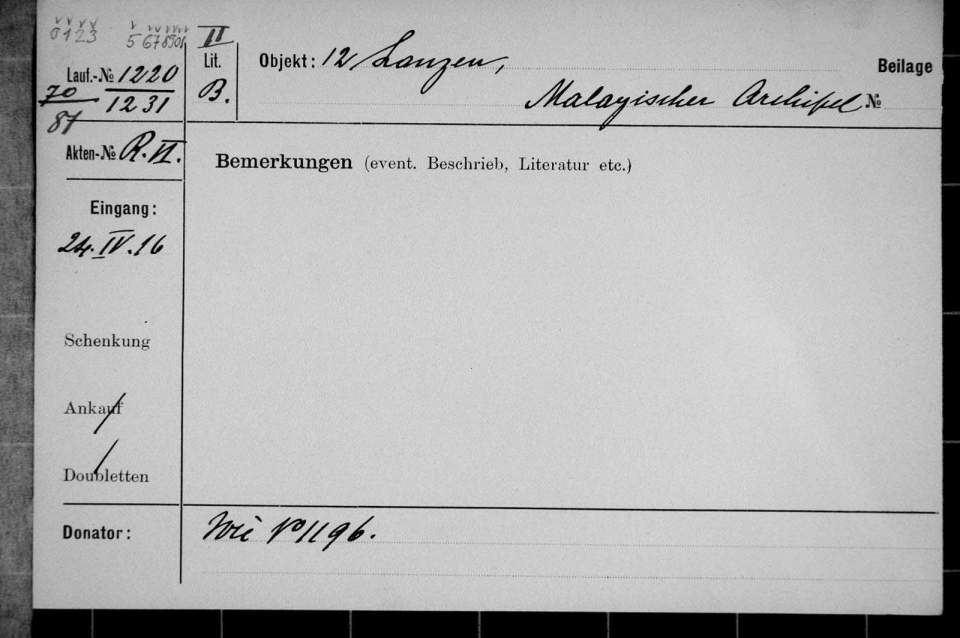 0123 5 678901
II
Lauf.-№ 1220
1231
70
81
Lit.
B.
Objekt: 12 Lanzen,
Beilage
Malayischer Archipel №
Akten-№ R. VI.
Bemerkungen (event. Beschrieb, Literatur etc.)
Eingang:
24. IV. 16
Schenkung
Ankauf
Doubletten
Donator: Wie No 1196.